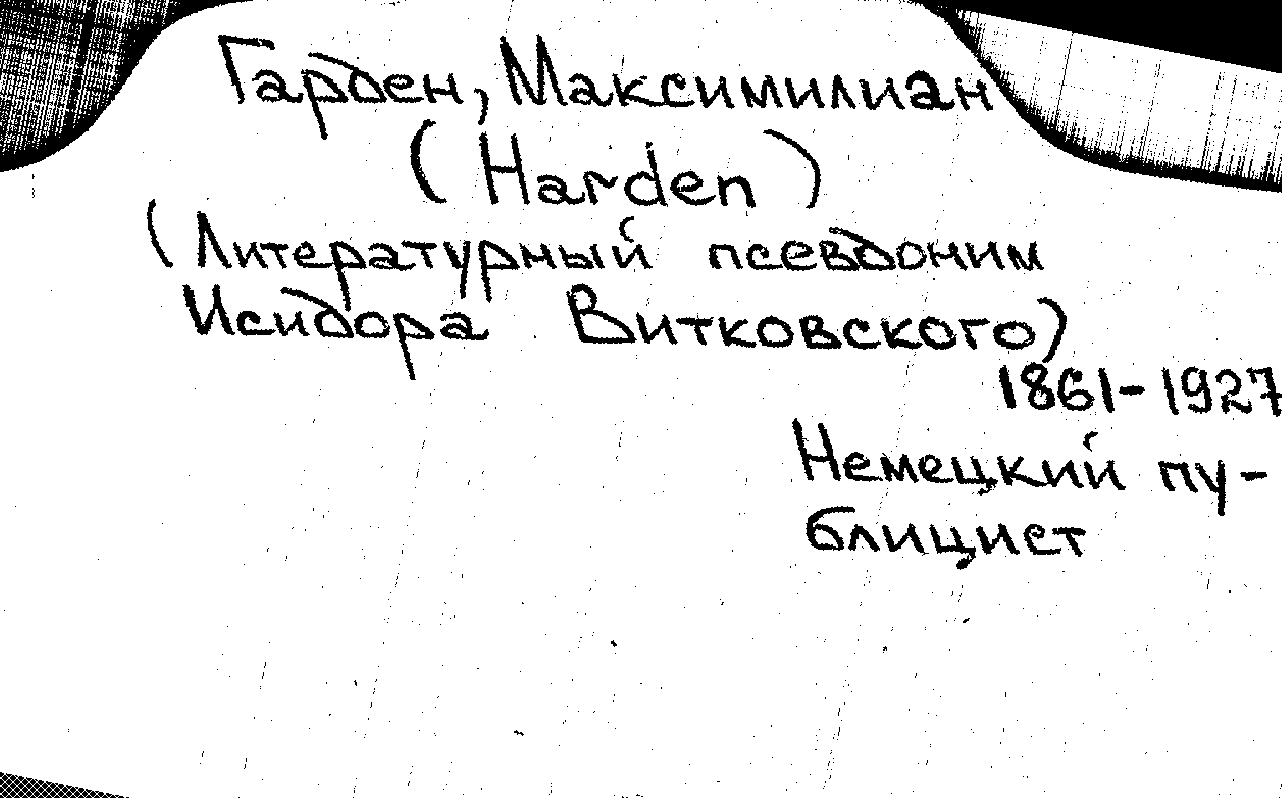 Гарден, Максимилиан
(Harden)
(Литературный псевдоним
Исидора Витковского)
1861-1927
Немецкий пу-
блицист